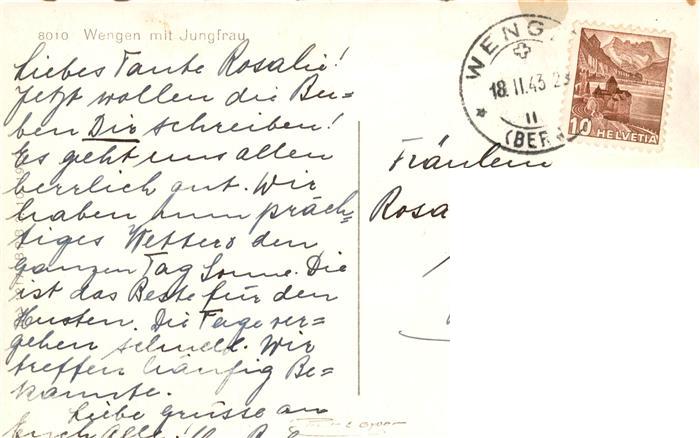 8010 Wengen mit Jungfrau
Liebes Tante Rosalie!
Jetzt wollen die Bu-
ben Dir schreiben!
Es geht uns allen
herrlich gut. Wir
haben nun präch-
tiges Wetter & den
ganzen Tag Sonne. Die
ist das Beste für den
Husten. Die Tage ver=
gehen schnell. Wir
treffen häufig Be=
kannte.
Liebe Grüsse an
Euch Alle!
WENG
18.II.43
II
(BERN
10 HELVETIA
Fräulein
Rosa